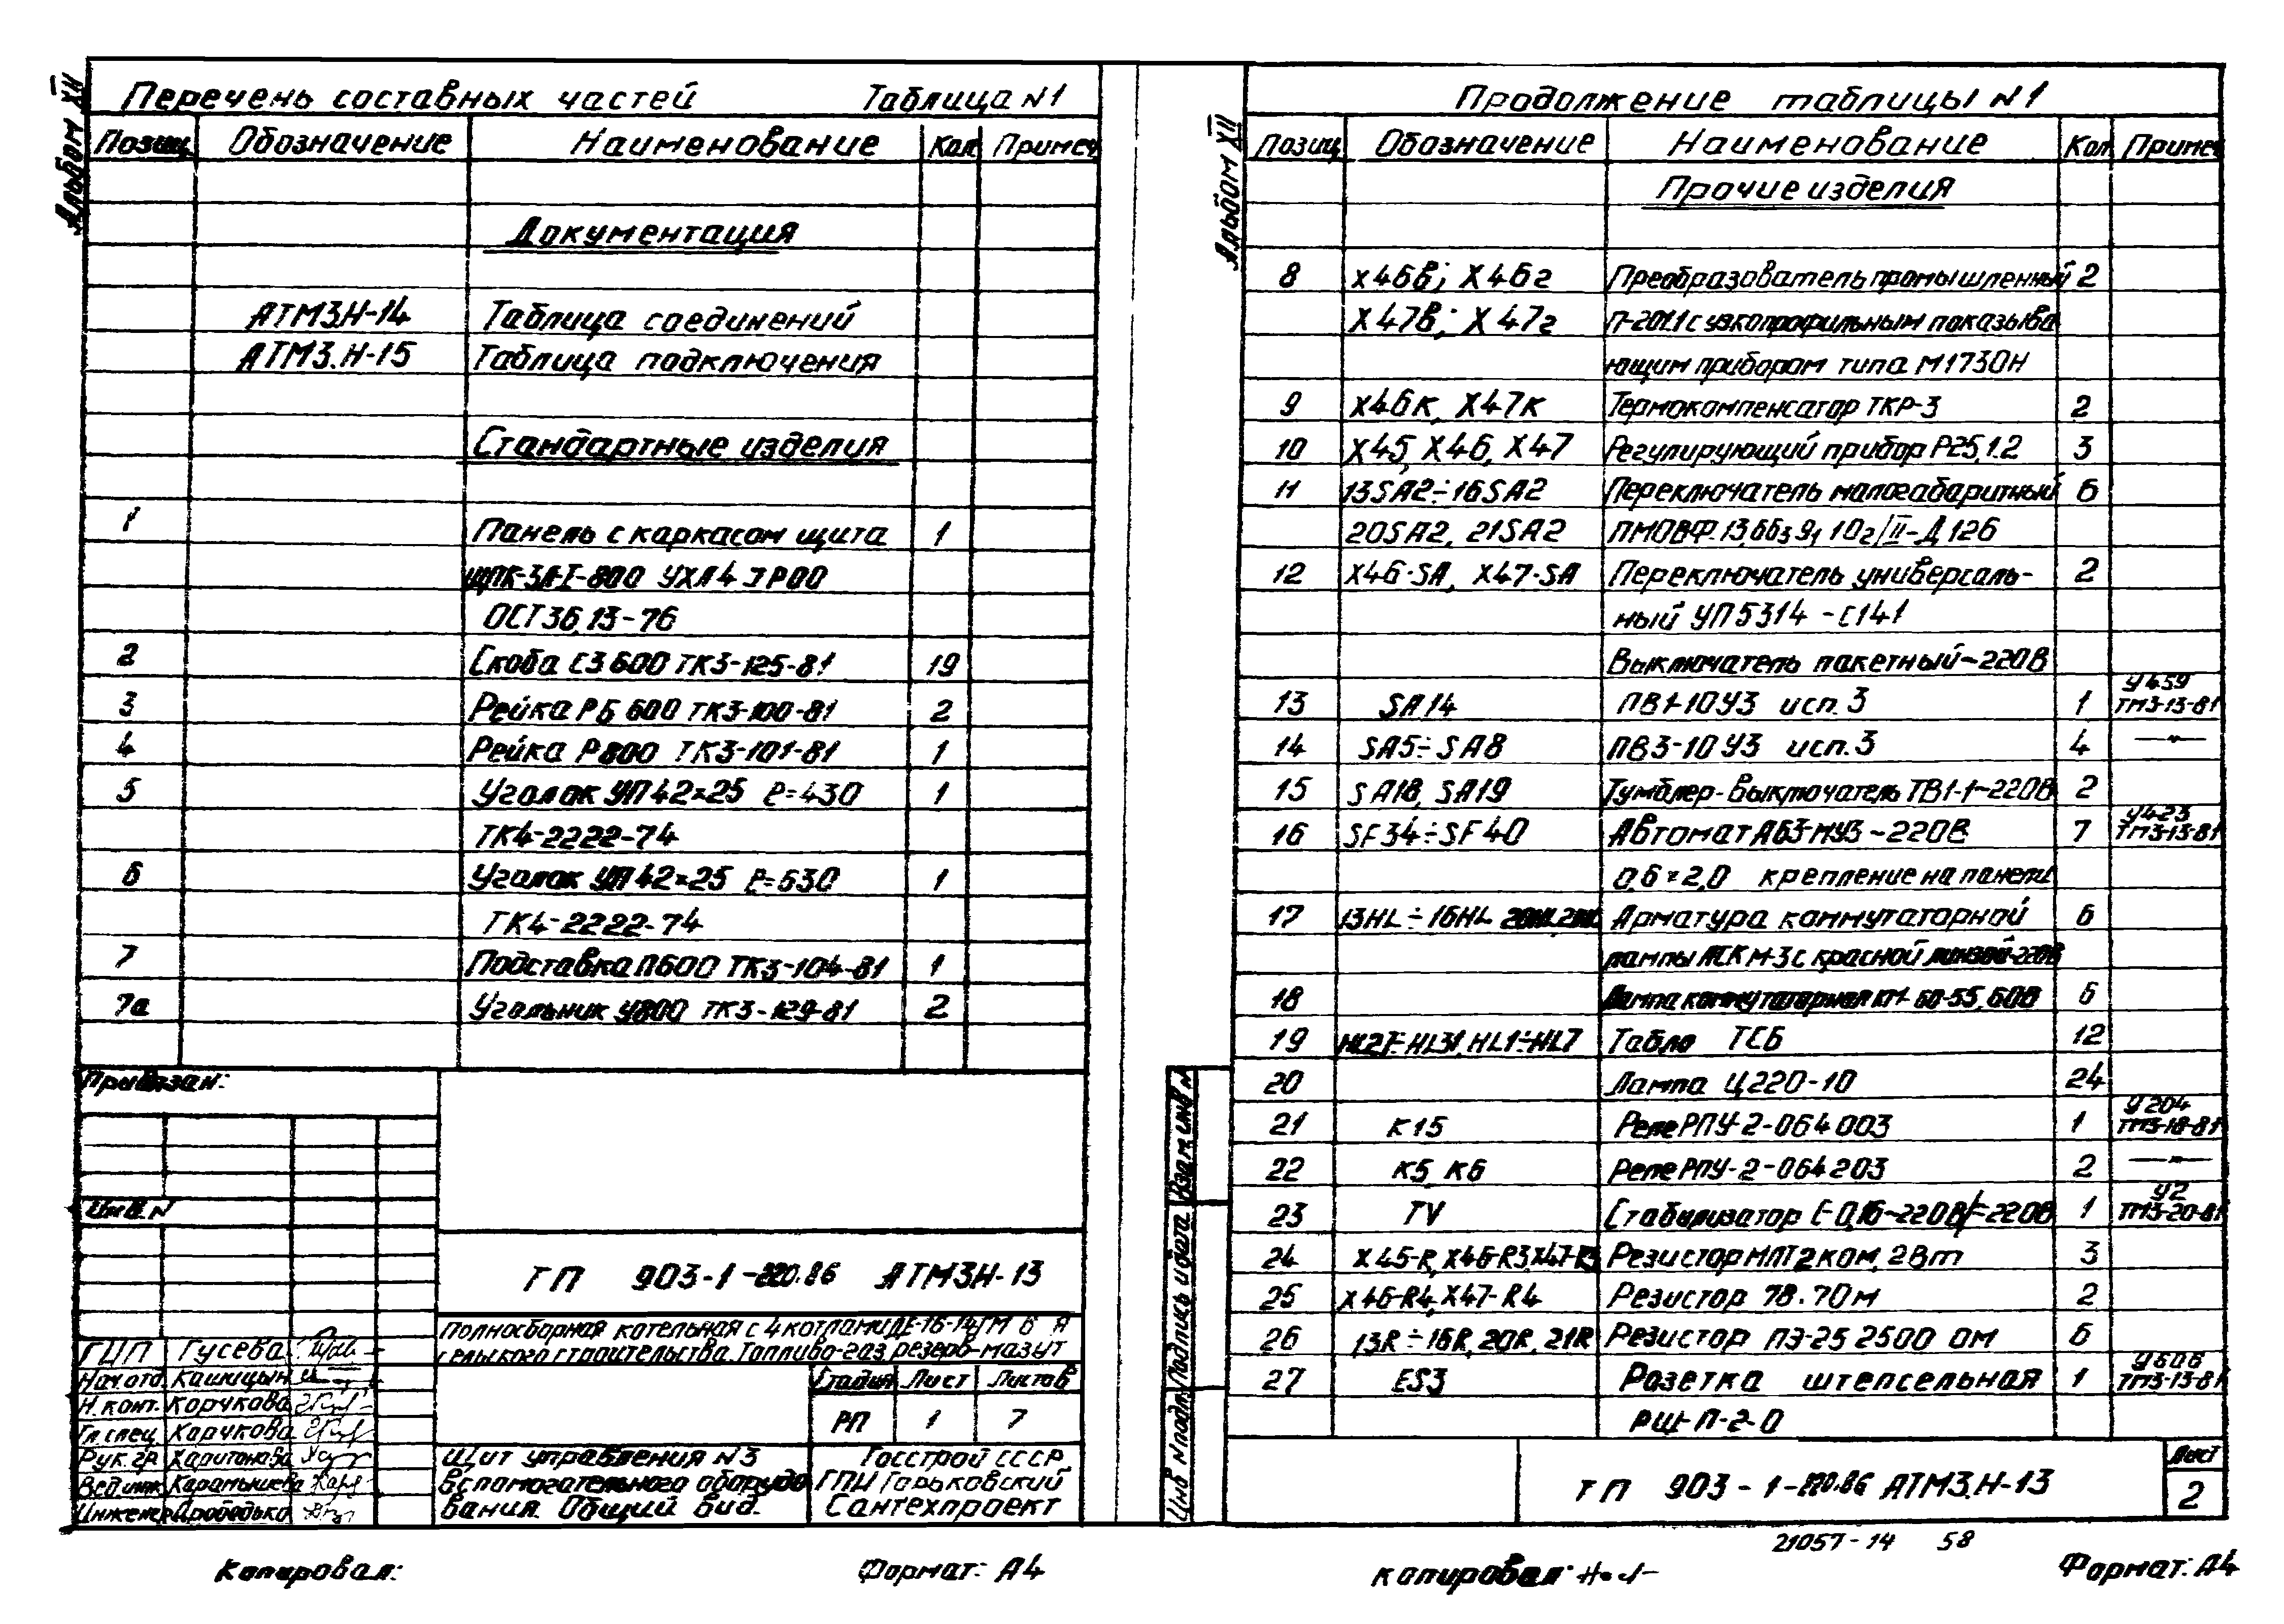 Альбом XII
Перечень составных частей Таблица N1
Позиц. Обозначение Наименование Кол Примеч
Документация
АТМ3.Н-14 Таблица соединений
АТМ3.Н-15 Таблица подключения
Стандартные изделия
1 Панель с каркасом щита 1
ЩПК-ЗЛ-I-800 УХЛ4 JP00
ОСТ36.13-76
2 Скоба С3 600 ТК3-125-81 19
3 Рейка РБ 600 ТК3-100-81 2
4 Рейка Р800 ТК3-101-81 1
5 Уголок УП 42×25 ℓ=430 1
ТК4-2222-74
6 Уголок УП 42×25 ℓ=530 1
ТК4-2222-74
7 Подставка П600 ТК3-104-81 1
7а Угольник У800 ТК3-129-81 2
Привязан:
Инв. N
ТП 903-1-220.86 АТМ3.Н-13
Полносборная котельная с 4 котлами ДЕ-16-14ГМ в
сельского строительства. Топливо-газ, резерв-мазут
ГИП Гусева
Нач. отд. Кашицын
Н. конт. Корчкова
Гл. спец. Корчкова
Рук. гр. Харитонова
Вед. инж. Карамышева
Инженер
Стадия Лист Листов
РП 1 7
Щит управления N3
вспомогательного оборудо
вания. Общий вид.
Госстрой СССР
ГПИ Горьковский
Сантехпроект
Копировал:
Формат: А4
Альбом XII
Продолжение таблицы N1
Позиц Обозначение Наименование Кол Примеч
Прочие изделия
8 Х46в; Х46г Преобразователь промышленный 2
Х47в; Х47г П-201.1 с узкопрофильным показыва
ющим прибором типа М1730Н
9 Х46к, Х47к Термокомпенсатор ТКР-3 2
10 Х45, Х46, Х47 Регулирующий прибор Р25.1.2 3
11 13SA2÷16SA2 Переключатель малогабаритный 6
20SA2, 21SA2 ПМОВФ.13,66з 9, 10г/II-Д126
12 Х46-SA, Х47-SA Переключатель универсаль-
ный УП5314-С141 2
Выключатель пакетный ~220В
13 SA14 ПВ1-10У3 исп. 3 1 У459
ТМ3-13-81
14 SA5÷SA8 ПВ3-10У3 исп. 3 4 —"—
15 SA18, SA19 Тумблер-выключатель ТВ1-1~220В 2
16 SF34÷SF40 Автомат АБ3-МУ3 ~220В 7 У423
ТМ3-13-81
0,6×2,0 крепление на панели
17 13HL÷16HL 20HL, 21HL Арматура коммутаторной 6
лампы АСКМ-3 с красной линзой ~220В
18 Лампа коммутаторная КМ 60-55, 60В 6
19 HL27÷HL31, HL1÷HL7 Табло ТСБ 12
20 Лампа Ц220-10 24
21 К15 Реле РПУ-2-064003 1 У204
ТМ3-18-81
22 К5, К6 Реле РПУ-2-064203 2 —"—
23 TV Стабилизатор С-0,16~220В/~220В 1 У2
ТМ3-20-81
24 Х45-R, Х46-R3, Х47-R3 Резистор МЛТ 2ком, 2Вт 3
25 Х46-R4, Х47-R4 Резистор 78.70м 2
26 13R÷16R, 20R, 21R Резистор ПЭ-25 2500 ОМ 6
27 ES3 Розетка штепсельная 1 У606
ТМ3-13-81
РШ-П-2-0
Взам инв N
Подпись и дата
Инв N подл.
ТП 903-1-220.86 АТМ3.Н-13
Лист
2
21057-14 58
Копировал:
Формат: А4